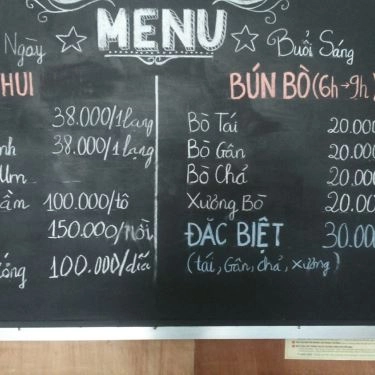 MENU
Ngày
Buổi Sáng
HUI
38.000/1lạng
nh 38.000/1lạng
Um
ầm 100.000/tô
150.000/nồi
óng 100.000/dĩa
BÚN BÒ (6h→9h)
Bò Tái 20.000
Bò Gân 20.000
Bò Chả 20.000
Xương Bò 20.000
ĐẶC BIỆT 30.00
(tái, Gân, chả, xương)